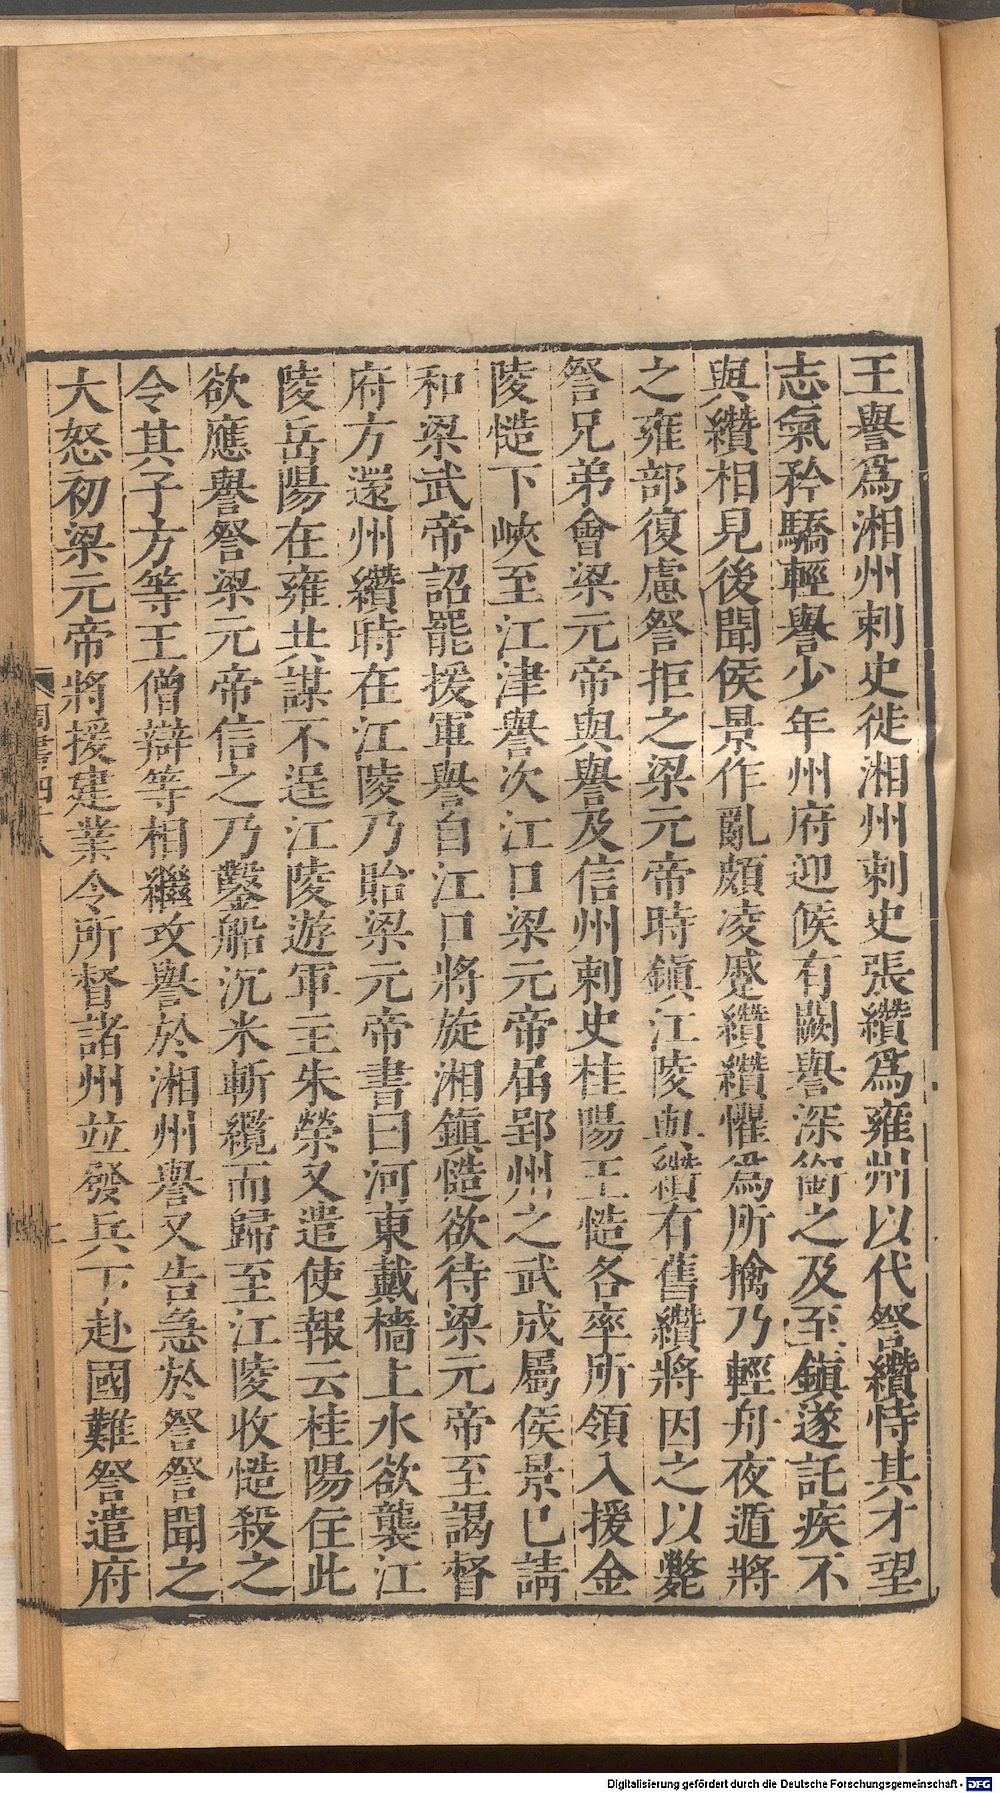 王譽爲湘州刺史徙湘州刺史張纘爲雍州以代詧纘恃其才望
志氣矜驕輕譽少年州府迎候有闕譽深銜之及至鎮遂託疾不
與纘相見後聞侯景作亂頗凌蹙纘纘懼爲所擒乃輕舟夜遁將
之雍部復慮詧拒之梁元帝時鎮江陵與纘有舊纘將因之以斃
詧兄弟會梁元帝與譽及信州刺史桂陽王慥各率所領入援金
陵慥下峽至江津譽次江口梁元帝届郢州之武成屬侯景已請
和梁武帝詔罷援軍譽自江口將旋湘鎮慥欲待梁元帝至謁督
府方還州纘時在江陵乃貽梁元帝書曰河東戴檣上水欲襲江
陵岳陽在雍共謀不逞江陵遊軍主朱榮又遣使報云桂陽住此
欲應譽詧梁元帝信之乃鑿船沉米斬纜而歸至江陵收慥殺之
令其子方等王僧辯等相繼攻譽於湘州譽又告急於詧詧聞之
大怒初梁元帝將援建業令所督諸州並發兵下赴國難詧遣府
周書四十八
Digitalisierung gefördert durch die Deutsche Forschungsgemeinschaft - DFG